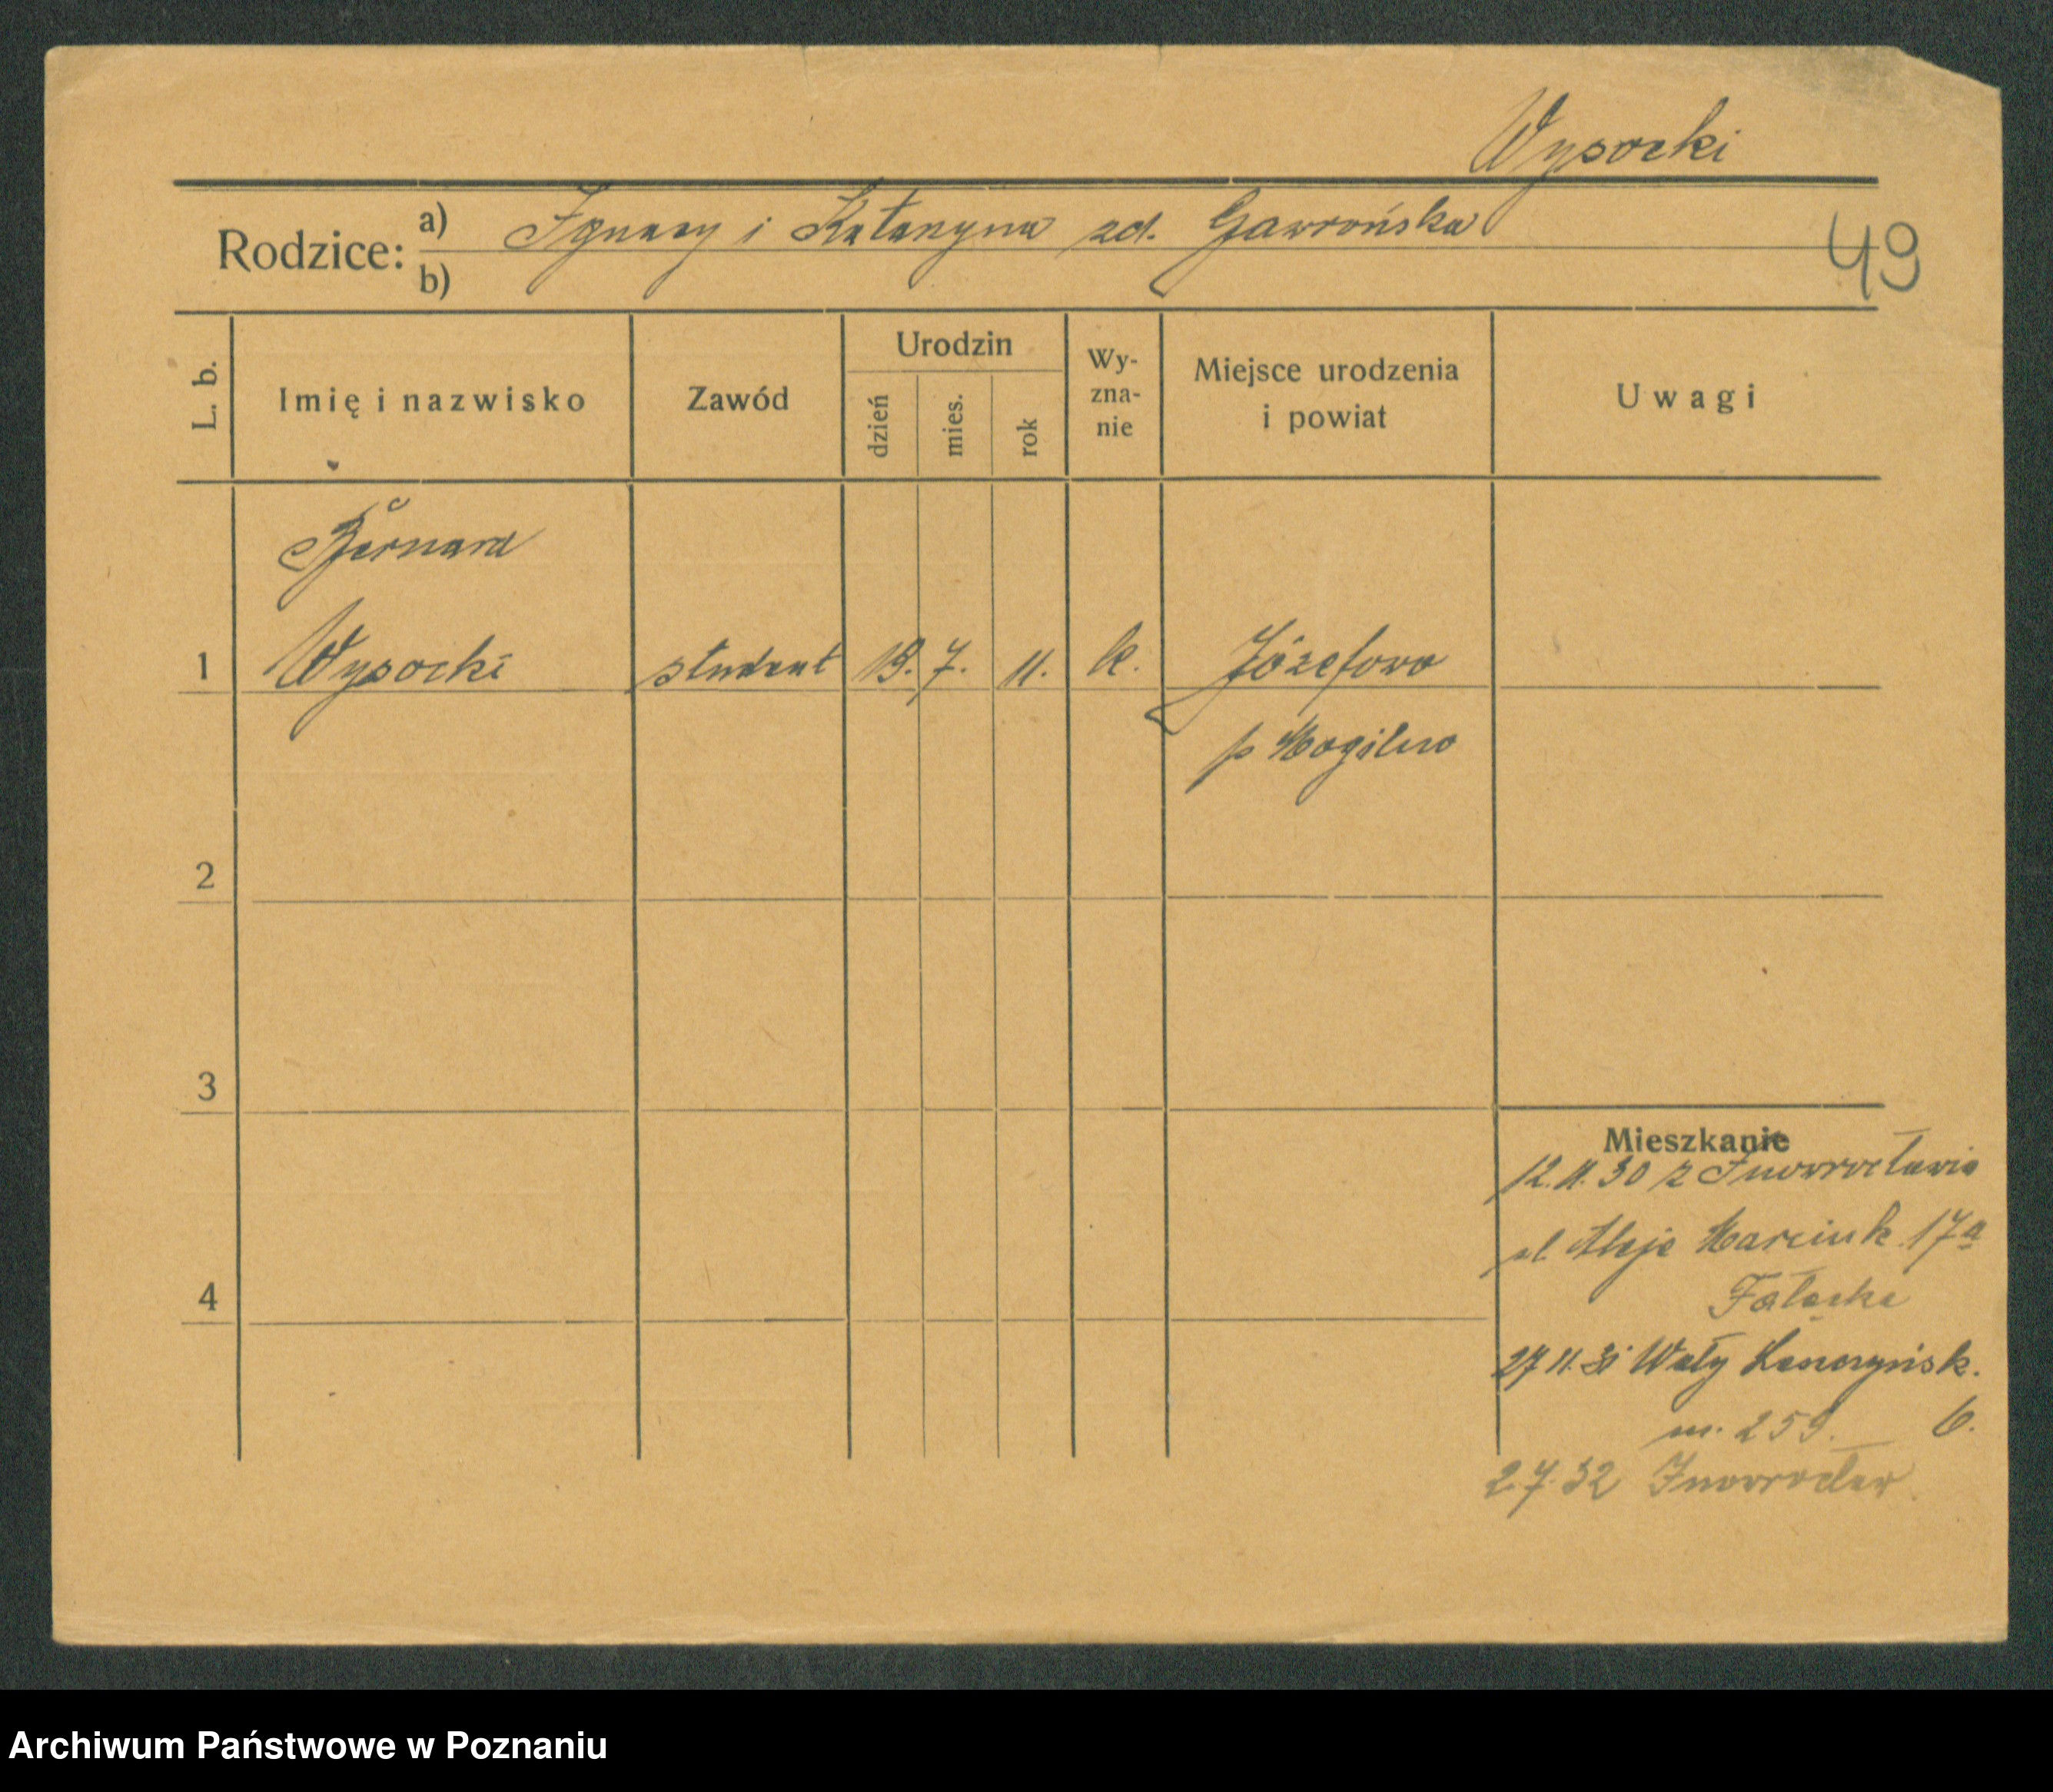 Wysocki
Rodzice: a) Ignacy i Katarzyna zd. Gawrońska
b)
49
L. b.
Imię i nazwisko
Zawód
Urodzin
dzień
mies.
rok
Wy-
zna-
nie
Miejsce urodzenia
i powiat
Uwagi
Bernard
1 Wysocki student 19. 7. 11. k. Józefowo
p Mogilno
2
3
4
Mieszkanie
12.11.30 z Inowrocławia
Aleje Marcink 17a
27 11. 31 Wały Leszczyńsk.
m. 259. 6.
2.7.32 Inowrocław
Archiwum Państwowe w Poznaniu